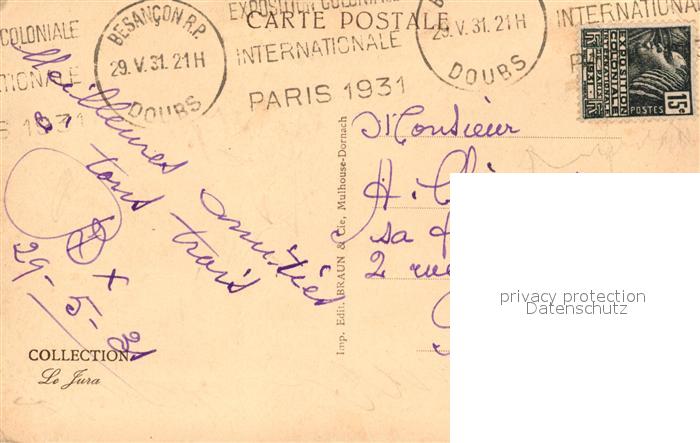 EXPOSITION COLONIALE
INTERNATIONALE
PARIS 1931
BESANÇON R.P.
29.V.31.21H
DOUBS
CARTE POSTALE
EXPOSITION COLONIALE
INTERNATIONALE
PARIS 1931
29.V.31.21H
DOUBS
INTERNATIONAL
EXPOSITION
COLONIALE
INTERNATIONALE
POSTES
15c
Meilleures amitiés
à tous trois
29-5-31
Monsieur
H.
sa
2 rue
Imp. Edit. BRAUN & Cie, Mulhouse-Dornach
COLLECTION
Le Jura
privacy protection
Datenschutz